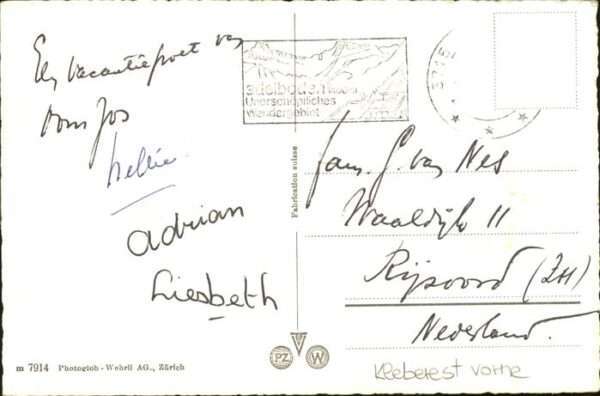 Een vacantiegroet van
oom Jos
Nellie
adrian
Liesbeth
m 7914 Photoglob-Wehrli AG., Zürich
adelboden 1400m
Unerschöpfliches
Wandergebiet
Fabrication suisse
Fam. G. van Nes
Waaldijk 11
Rijsoord (ZH)
Nederland.
PZ W
Kleberest vorne